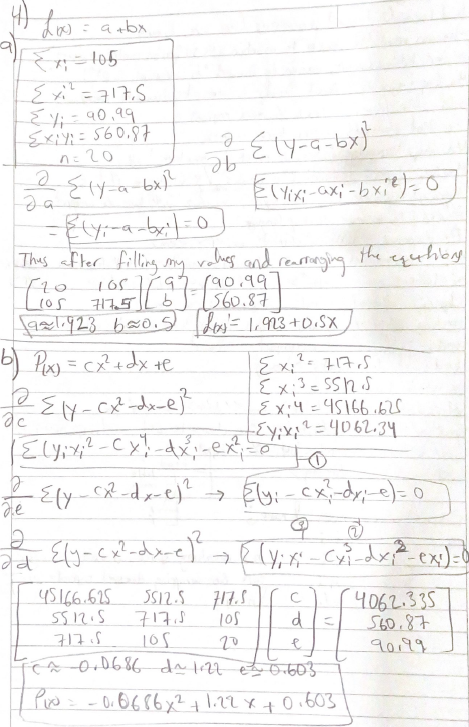 4) L(x) = a+bx
a)
Σxi = 105
Σxi² = 717.5
Σyi = 90.99
Σxiyi = 560.87
n = 20
∂/∂a Σ(y-a-bx)²
= Σ(yi-a-bxi) = 0
∂/∂b Σ(y-a-bx)²
Σ(yixi-axi-bxi²) = 0
Thus after filling my values and rearranging the equations
[20 105
105 717.5] [a
b] = [90.99
560.87]
a≈1.923 b≈0.5 L(x) = 1.923+0.5x
b) P(x) = cx²+dx+e
Σxi² = 717.5
Σxi³ = 5512.5
Σxi4 = 45166.625
Σyixi² = 4062.34
∂/∂c Σ(y-cx²-dx-e)²
Σ(yixi²-cxi⁴-dxi³-exi²=0 ①
∂/∂e Σ(y-cx²-dx-e)² → Σ(yi-cxi²-dxi-e)=0
③ ②
∂/∂d Σ(y-cx²-dx-e)² → Σ(yixi-cxi³-dxi²-exi)=0
[45166.625 5512.5 717.5
5512.5 717.5 105
717.5 105 20] [c
d
e] = [4062.335
560.87
90.99]
c ≈ -0.0686 d≈1.22 e≈0.603
P(x) = -0.0686x²+1.22x+0.603